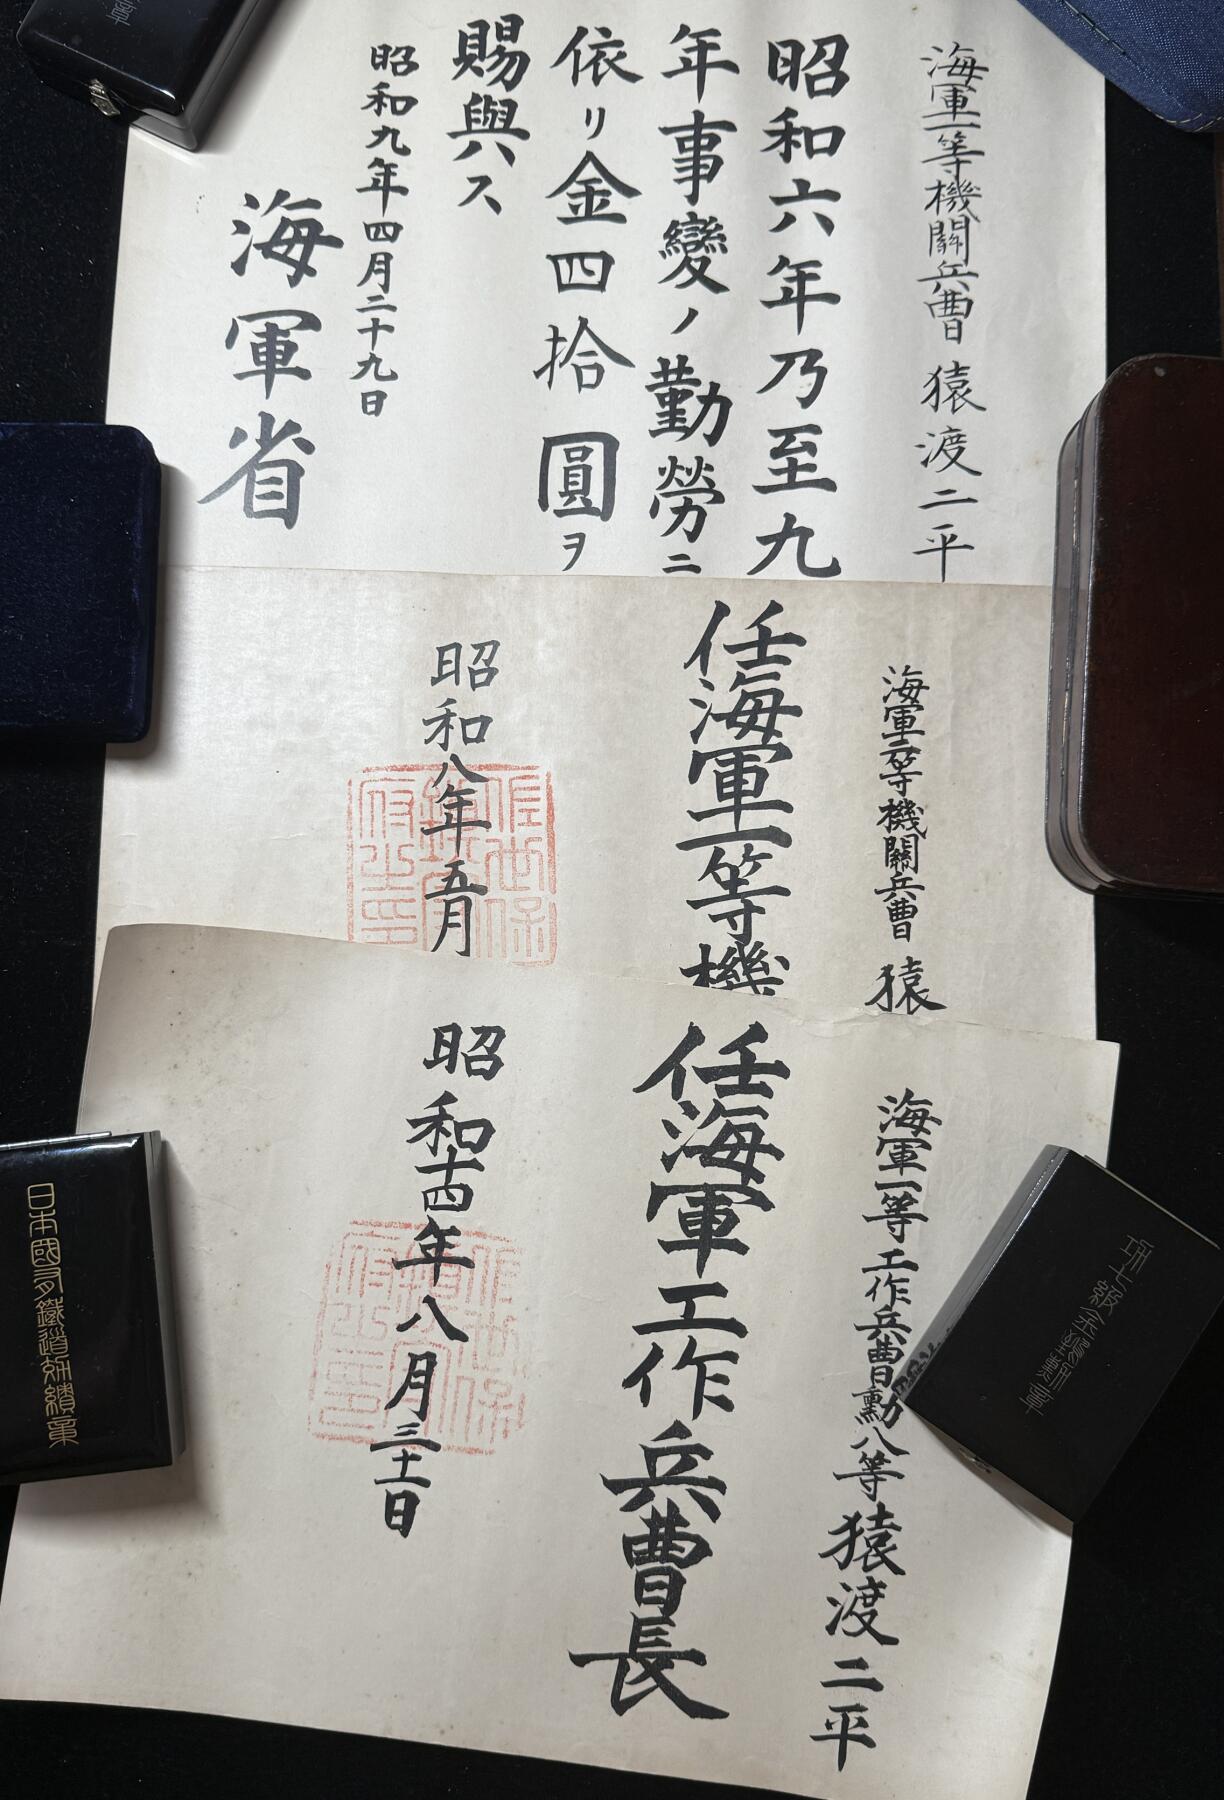 海軍一等機關兵曹 猿渡二平
昭和六年乃至九
年事變ノ勤勞ニ
依リ金四拾圓ヲ
賜與ス
昭和九年四月二十九日
海軍省
海軍二等機關兵曹 猿
任海軍一等機
昭和八年五月
海軍一等工作兵曹勳八等猿渡二平
任海軍工作兵曹長
昭和十四年八月三十一日
佐世保
鎮守
府之印
日本國有鐵道功績章
功七級金鵄勳章
章